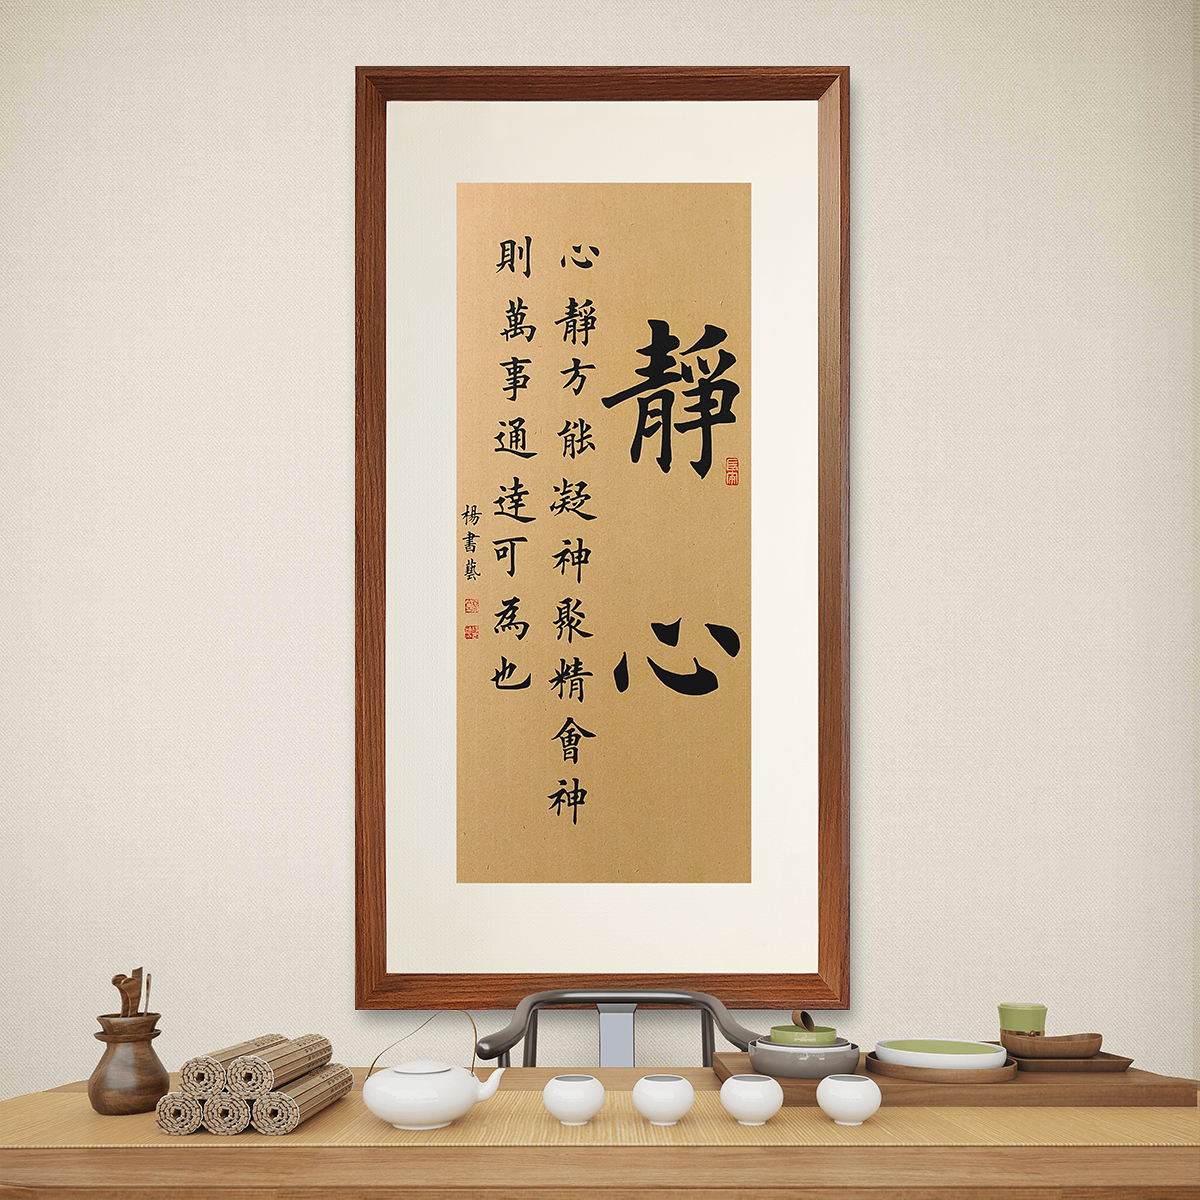 靜心
心靜方能凝神聚精會神
則萬事通達可為也
楊書藝